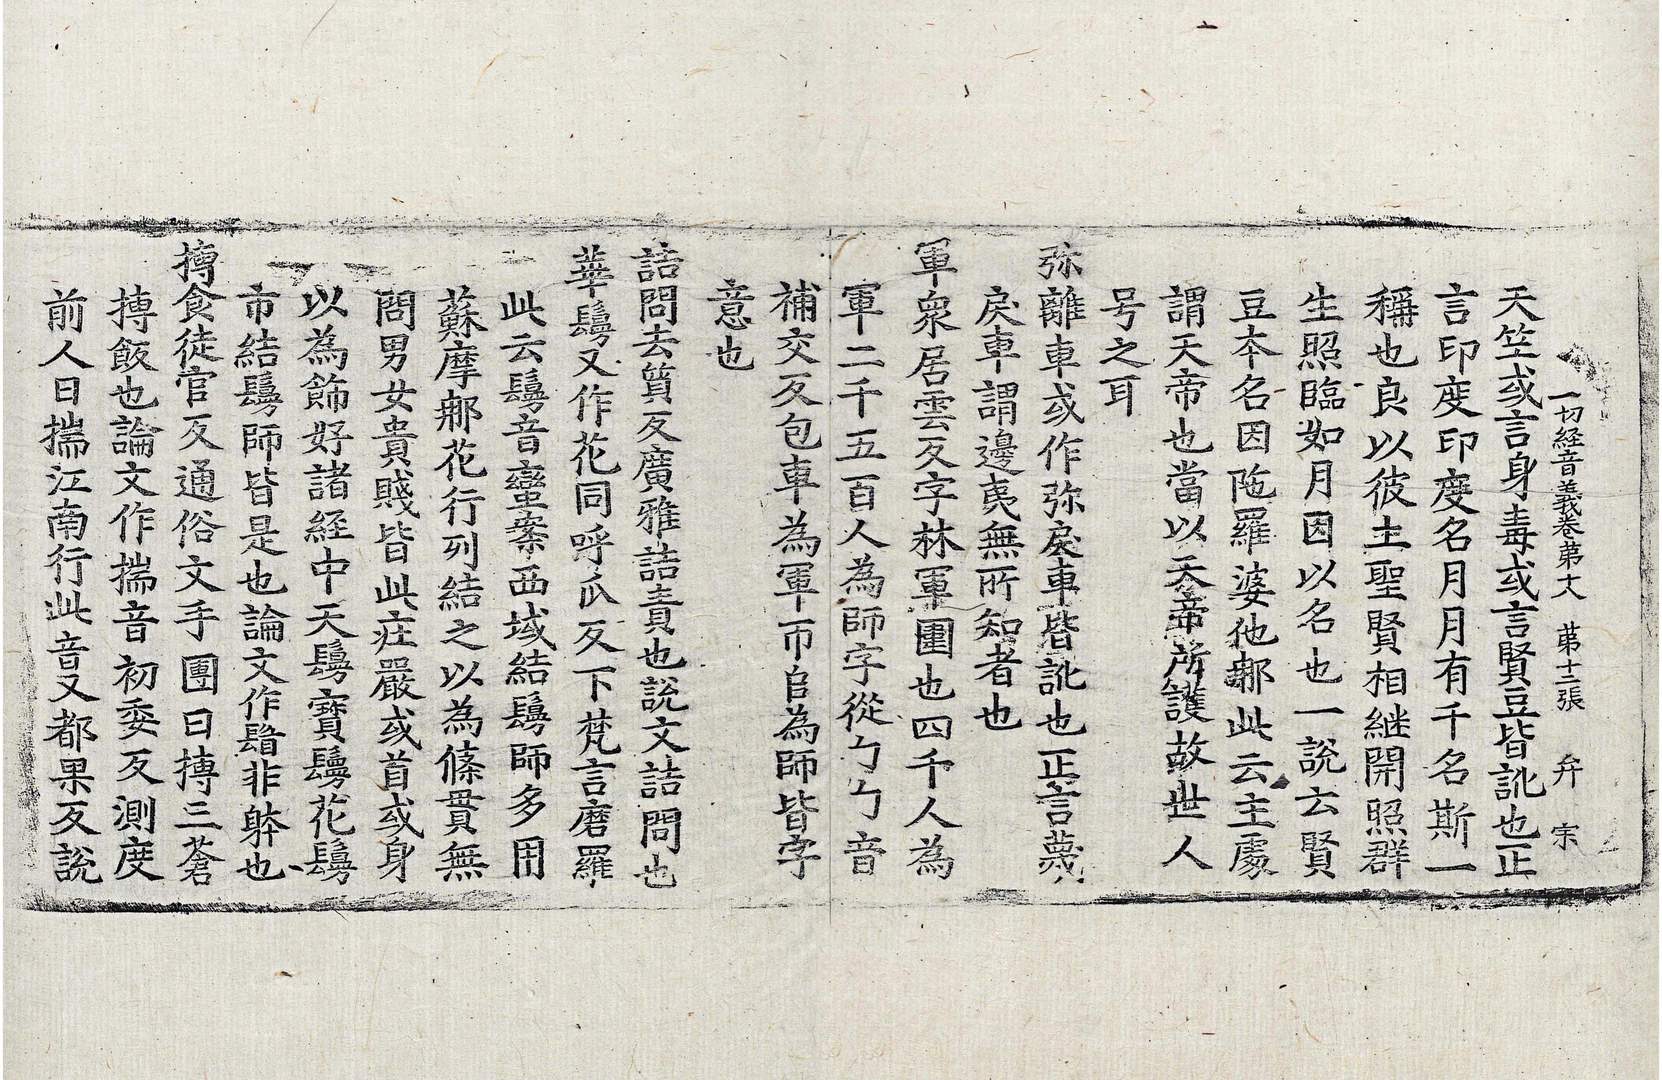 一切経音義卷苐六 苐十二張 弁 宗
天竺或言身毒或言賢豆皆訛也正
言印度印度名月月有千名斯一
稱也良以彼主聖賢相継開照群
生照臨如月因以名也一說云賢
豆本名因陁羅婆他𨚗此云主處
謂天帝也當以天帝所護故世人
号之耳
弥離車或作弥戾車皆訛也正言蔑
戾車謂邊夷無所知者也
軍眾居雲反字林軍圍也四千人為
軍二千五百人為師字從勹勹音
補交反包車為軍帀𠂤為師皆字
意也
詰問去質反廣雅詰責也說文詰問也
華鬘又作花同呼瓜反下梵言磨羅
此云鬘音蠻案西域結鬘師多用
蘇摩𨚗花行列結之以為條貫無
問男女貴賤皆此莊嚴或首或身
以為飾好諸経中天鬘寶鬘花鬘
市結鬘師皆是也論文作𩭤非躰也
摶食徒官反通俗文手團曰摶三蒼
摶飯也論文作揣音初委反測度
前人曰揣江南行此音又都果反說